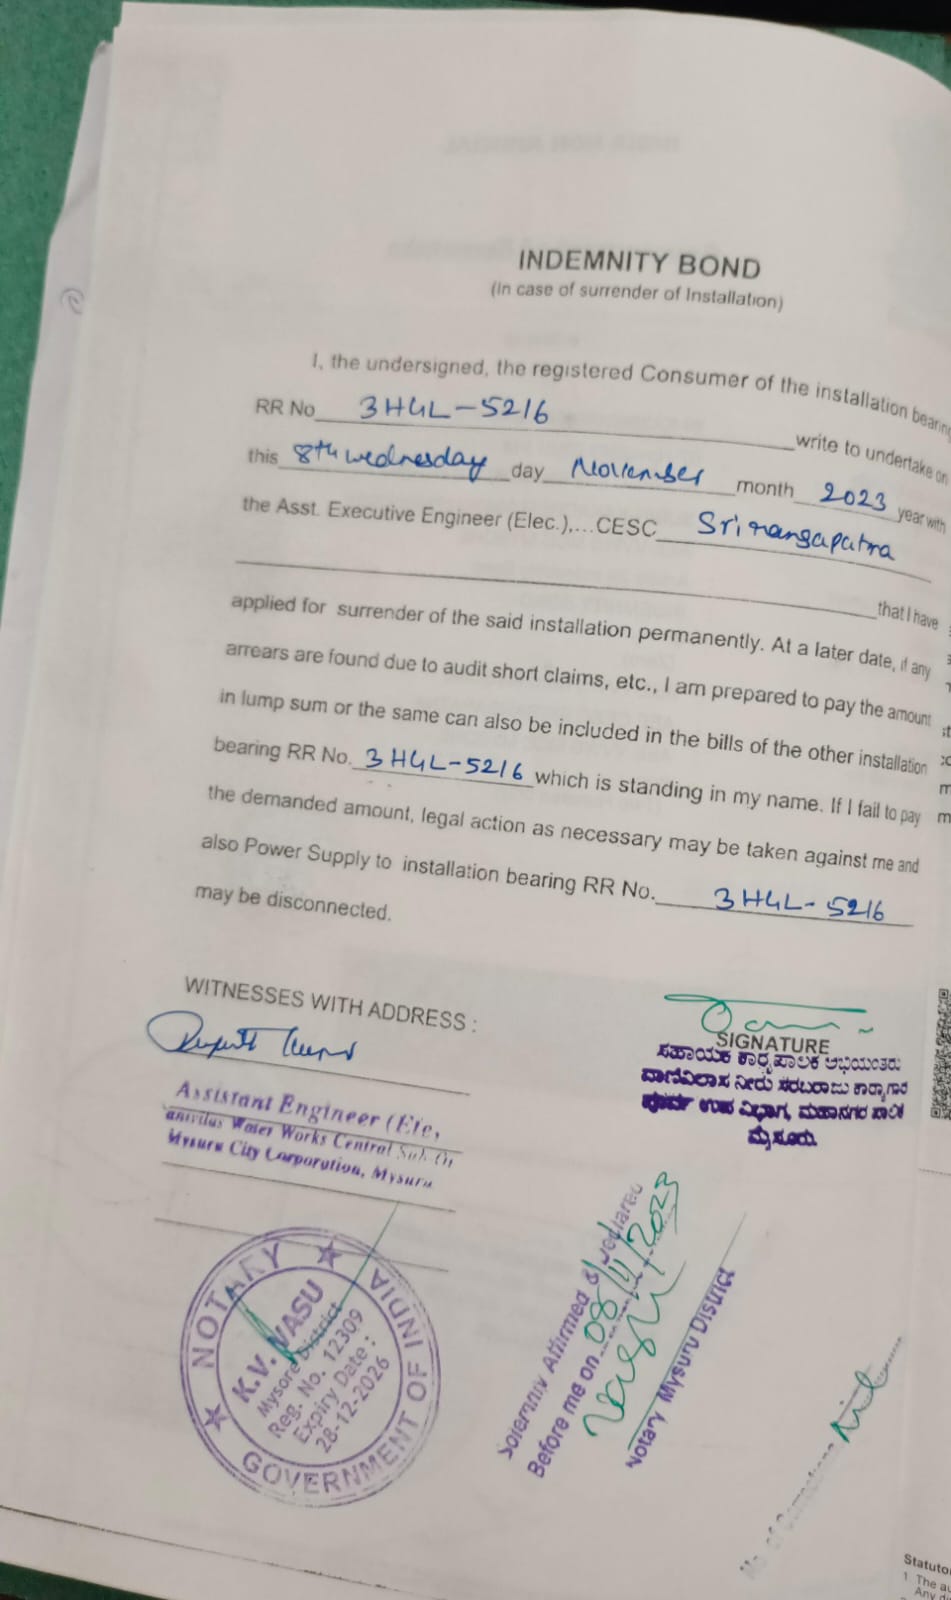 INDEMNITY BOND
(In case of surrender of Installation)
I, the undersigned, the registered Consumer of the installation bearing
RR No 3HGL-5216 write to undertake on
this 8th wednesday day November month 2023 year with
the Asst. Executive Engineer (Elec.),...CESC Srirangapatna
that I have
applied for surrender of the said installation permanently. At a later date, if any
arrears are found due to audit short claims, etc., I am prepared to pay the amount
in lump sum or the same can also be included in the bills of the other installation
bearing RR No. 3HGL-5216 which is standing in my name. If I fail to pay
the demanded amount, legal action as necessary may be taken against me and
also Power Supply to installation bearing RR No. 3HGL-5216
may be disconnected.
WITNESSES WITH ADDRESS :
Assistant Engineer (Ele,
anivilas Water Works Central Sub
Mysuru City Corporation, Mysuru
SIGNATURE
ಸಹಾಯಕ ಕಾರ್ಯಪಾಲಕ ಅಭಿಯಂತರು
ವಾಣಿವಿಲಾಸ ನೀರು ಸರಬರಾಜು ಕಾರ್ಯಾಗಾರ
ಪೂರ್ವ ಉಪ ವಿಭಾಗ, ಮಹಾನಗರ ಪಾಲಿಕೆ
ಮೈಸೂರು.
NOTARY
K.V. VASU
Mysore District
Reg. No. 12309
Expiry Date :
28-12-2026
GOVERNMENT OF INDIA
Solemnly Affirmed & Declared
Before me on 08/11/2023
Notary Mysuru District
No. of Corrections
Statuto
1 The au
Any d